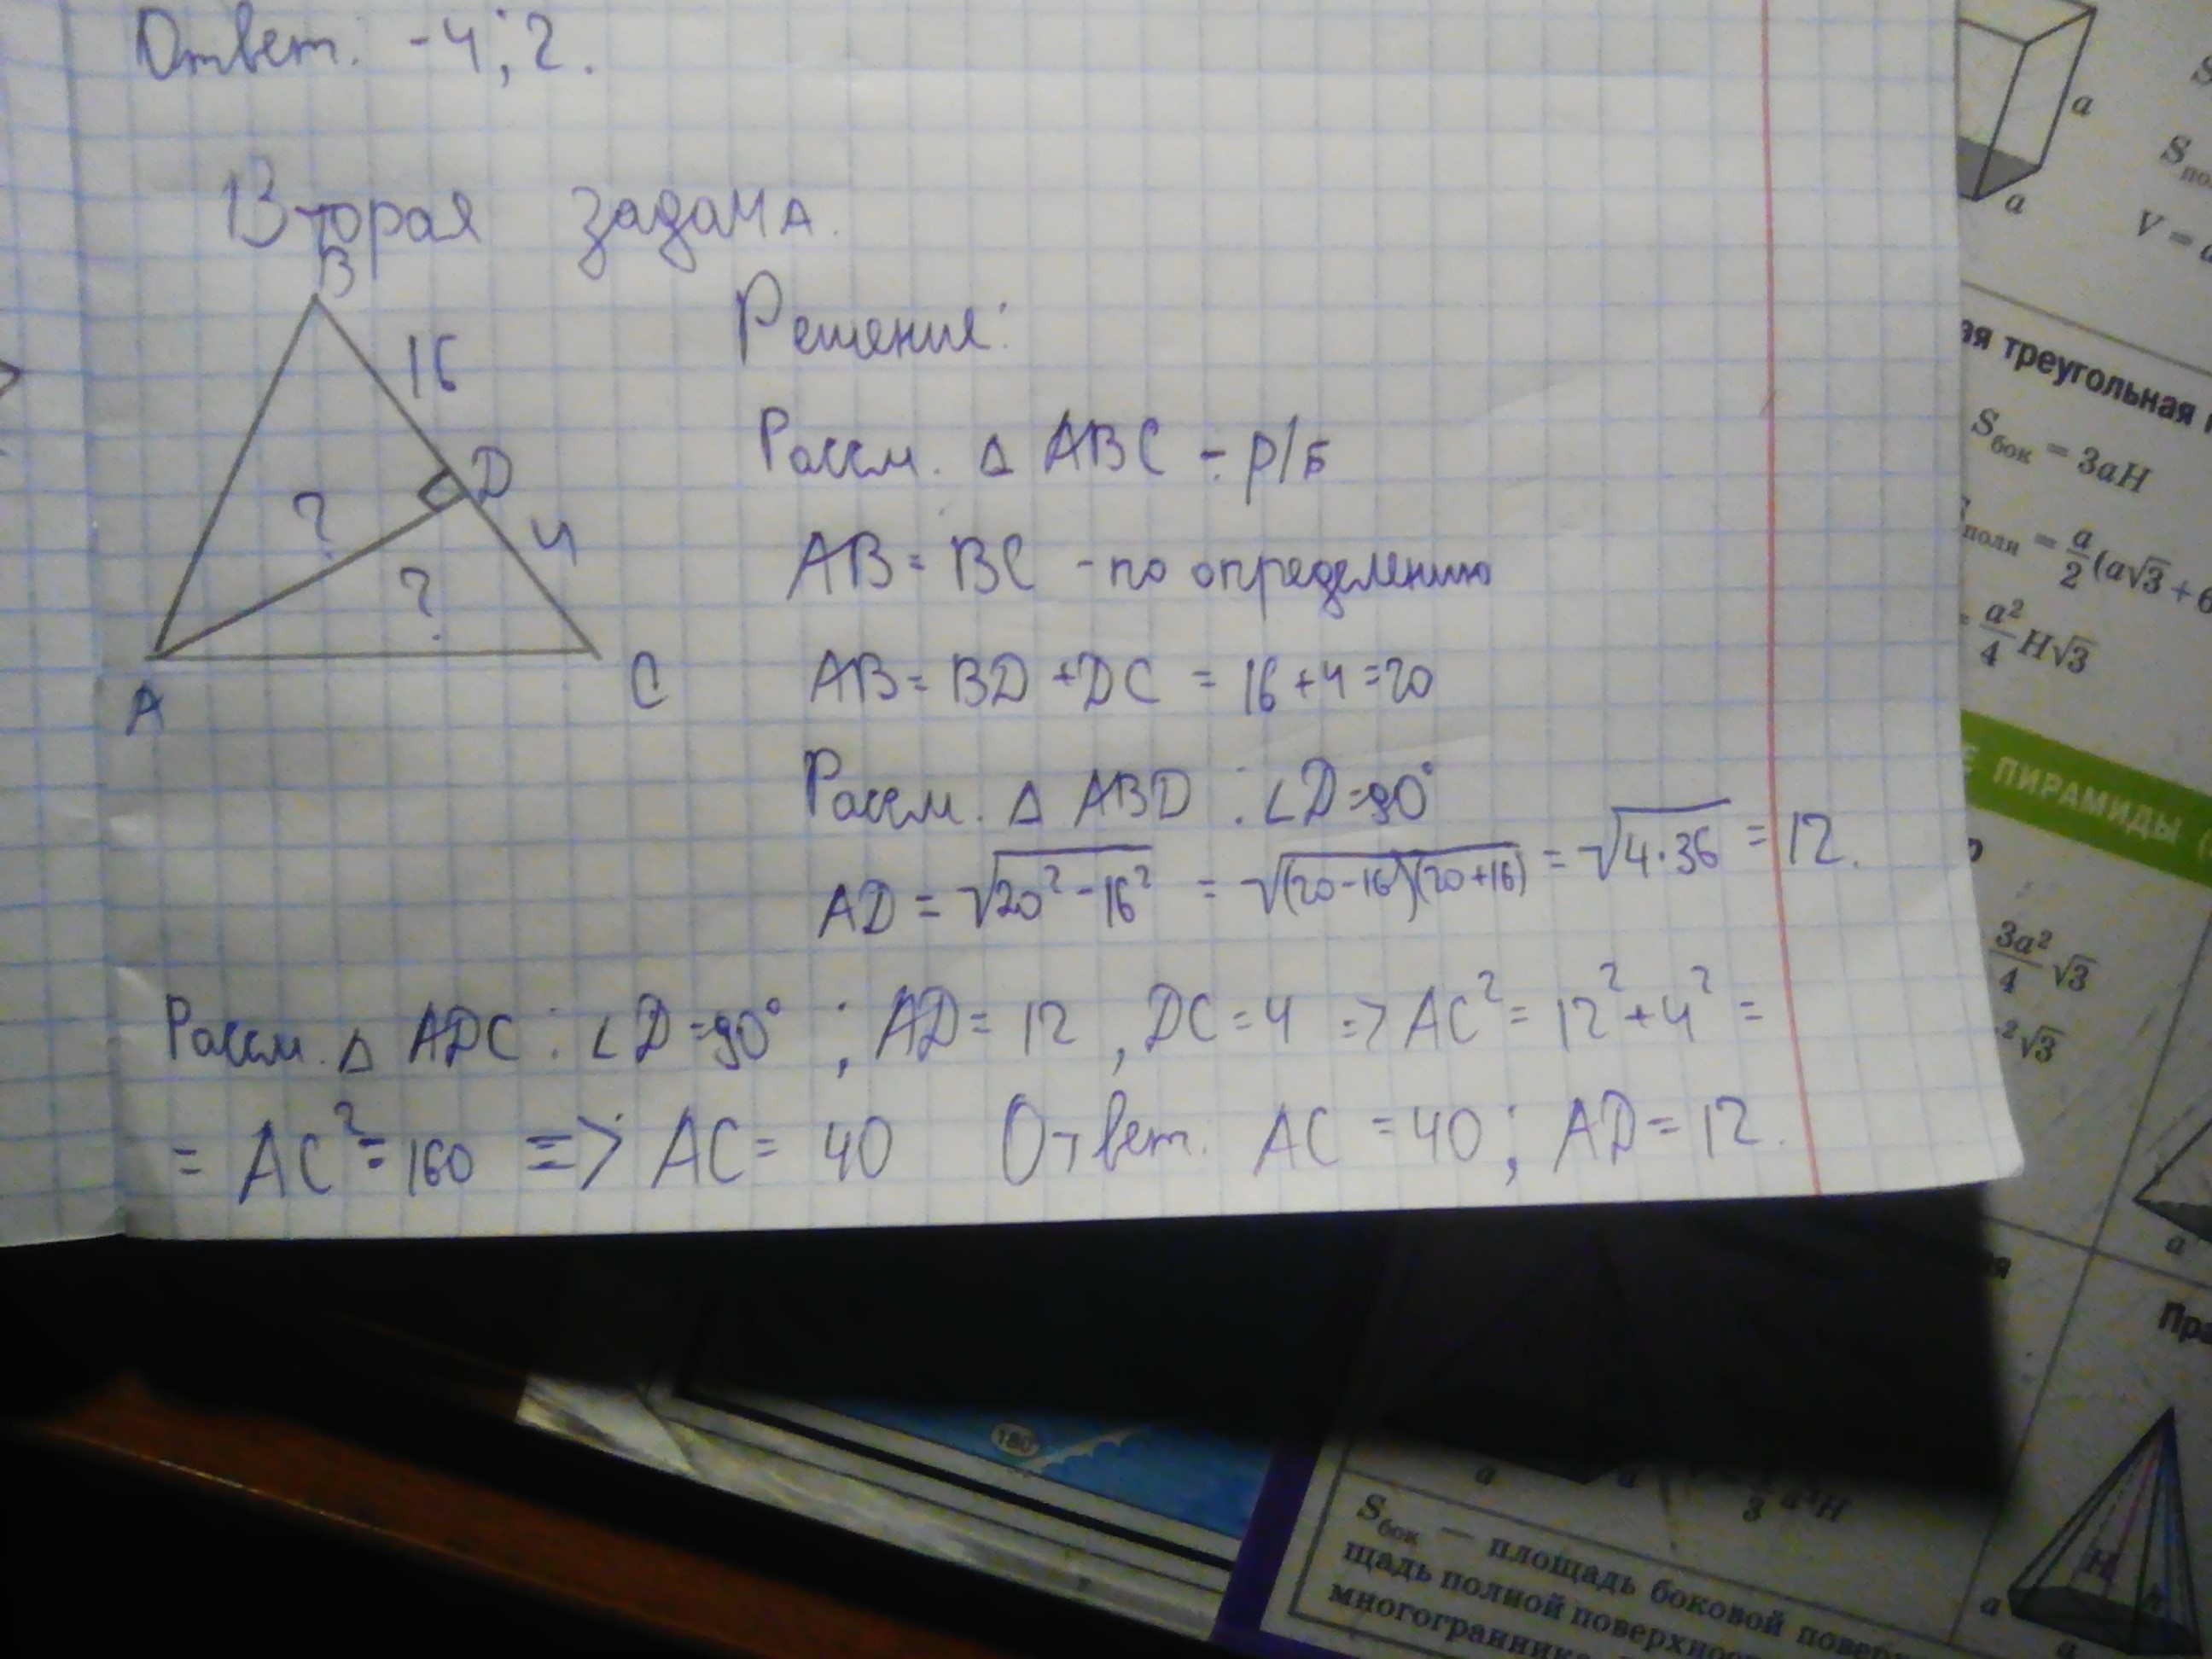 Ответ. -4; 2.
Вторая задача.
B
16
D
?
4
?
A
C
Решение:
Рассм. △ ABC - р/б
AB = BC - по определению
AB = BD + DC = 16 + 4 = 20
Рассм. △ ABD : ∠D=90°
AD = √(20² - 16²) = √((20-16)(20+16)) = √(4·36) = 12.
Рассм. △ ADC : ∠D=90° ; AD = 12 , DC = 4 => AC² = 12² + 4² =
= AC² = 160 => AC = 40 Ответ. AC = 40; AD = 12.
a
a
V =
ая треугольная
Sбок = 3aH
Sполн = a/2 (a√3 + 6
= a²/4 H√3
Е ПИРАМИДЫ (
3a²/4 √3
²√3
a
Пра
180
a
a
3 a²H
Sбок — площадь боковой поверх
щадь полной поверхнос
многогранника
H
a
a